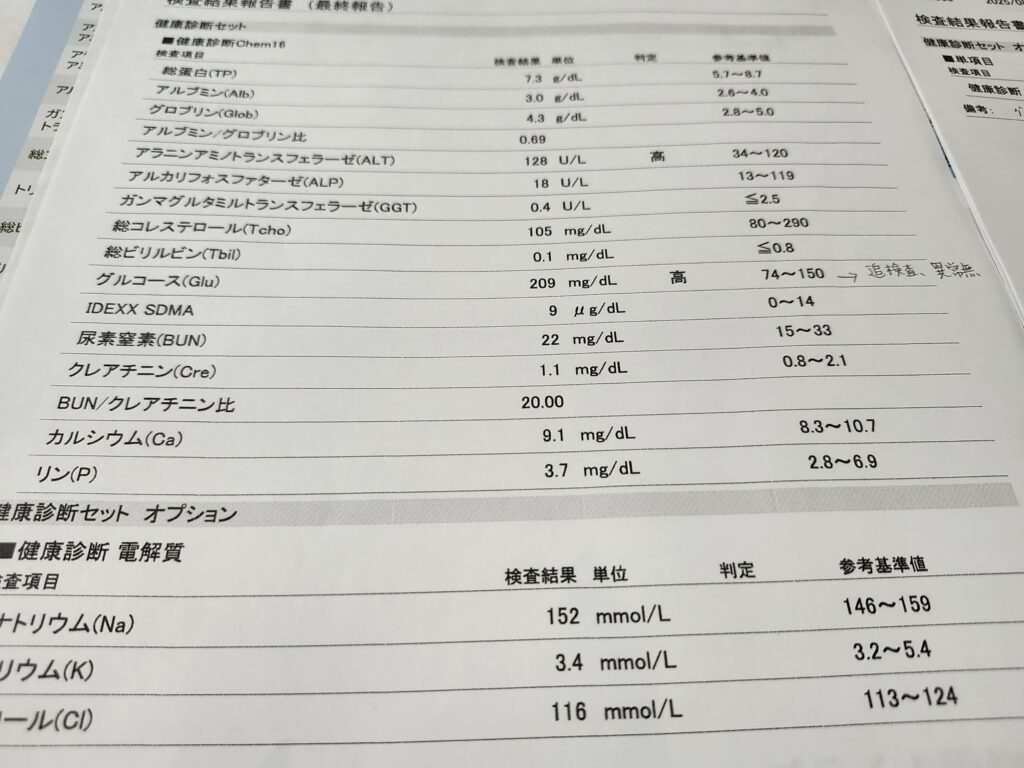 検査結果報告書 (最終報告)
健康診断セット
■健康診断Chem16
検査項目 検査結果 単位 判定 参考基準値
総蛋白(TP) 7.3 g/dL 5.7～8.7
アルブミン(Alb) 3.0 g/dL 2.6～4.0
グロブリン(Glob) 4.3 g/dL 2.8～5.0
アルブミン/グロブリン比 0.69
アラニンアミノトランスフェラーゼ(ALT) 128 U/L 高 34～120
アルカリフォスファターゼ(ALP) 18 U/L 13～119
ガンマグルタミルトランスフェラーゼ(GGT) 0.4 U/L ≦2.5
総コレステロール(Tcho) 105 mg/dL 80～290
総ビリルビン(Tbil) 0.1 mg/dL ≦0.8
グルコース(Glu) 209 mg/dL 高 74～150 → 追検査、異常無
IDEXX SDMA 9 μg/dL 0～14
尿素窒素(BUN) 22 mg/dL 15～33
クレアチニン(Cre) 1.1 mg/dL 0.8～2.1
BUN/クレアチニン比 20.00
カルシウム(Ca) 9.1 mg/dL 8.3～10.7
リン(P) 3.7 mg/dL 2.8～6.9
健康診断セット オプション
■健康診断 電解質
検査項目 検査結果 単位 判定 参考基準値
ナトリウム(Na) 152 mmol/L 146～159
リウム(K) 3.4 mmol/L 3.2～5.4
ロール(Cl) 116 mmol/L 113～124
検査結果報告書
健康診断セット オ
■単項目
検査項目
健康診断
備考: